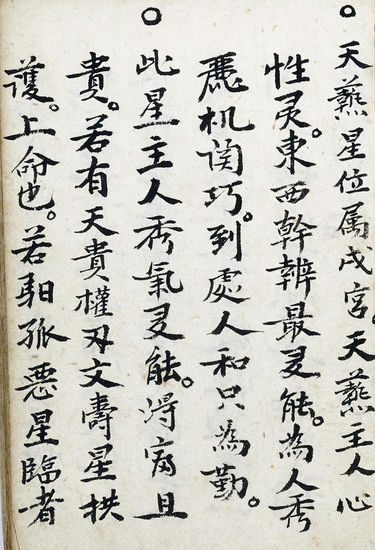 ○天藝星位属戌宮。天藝主人心
性灵。東西幹辨最夛能。為人秀
麗机関巧。到處人和只為勤。
○此星主人秀氣夛能。得富且
貴。若有天貴權刃文壽星拱
護。上命也。若馹孤惡星臨者